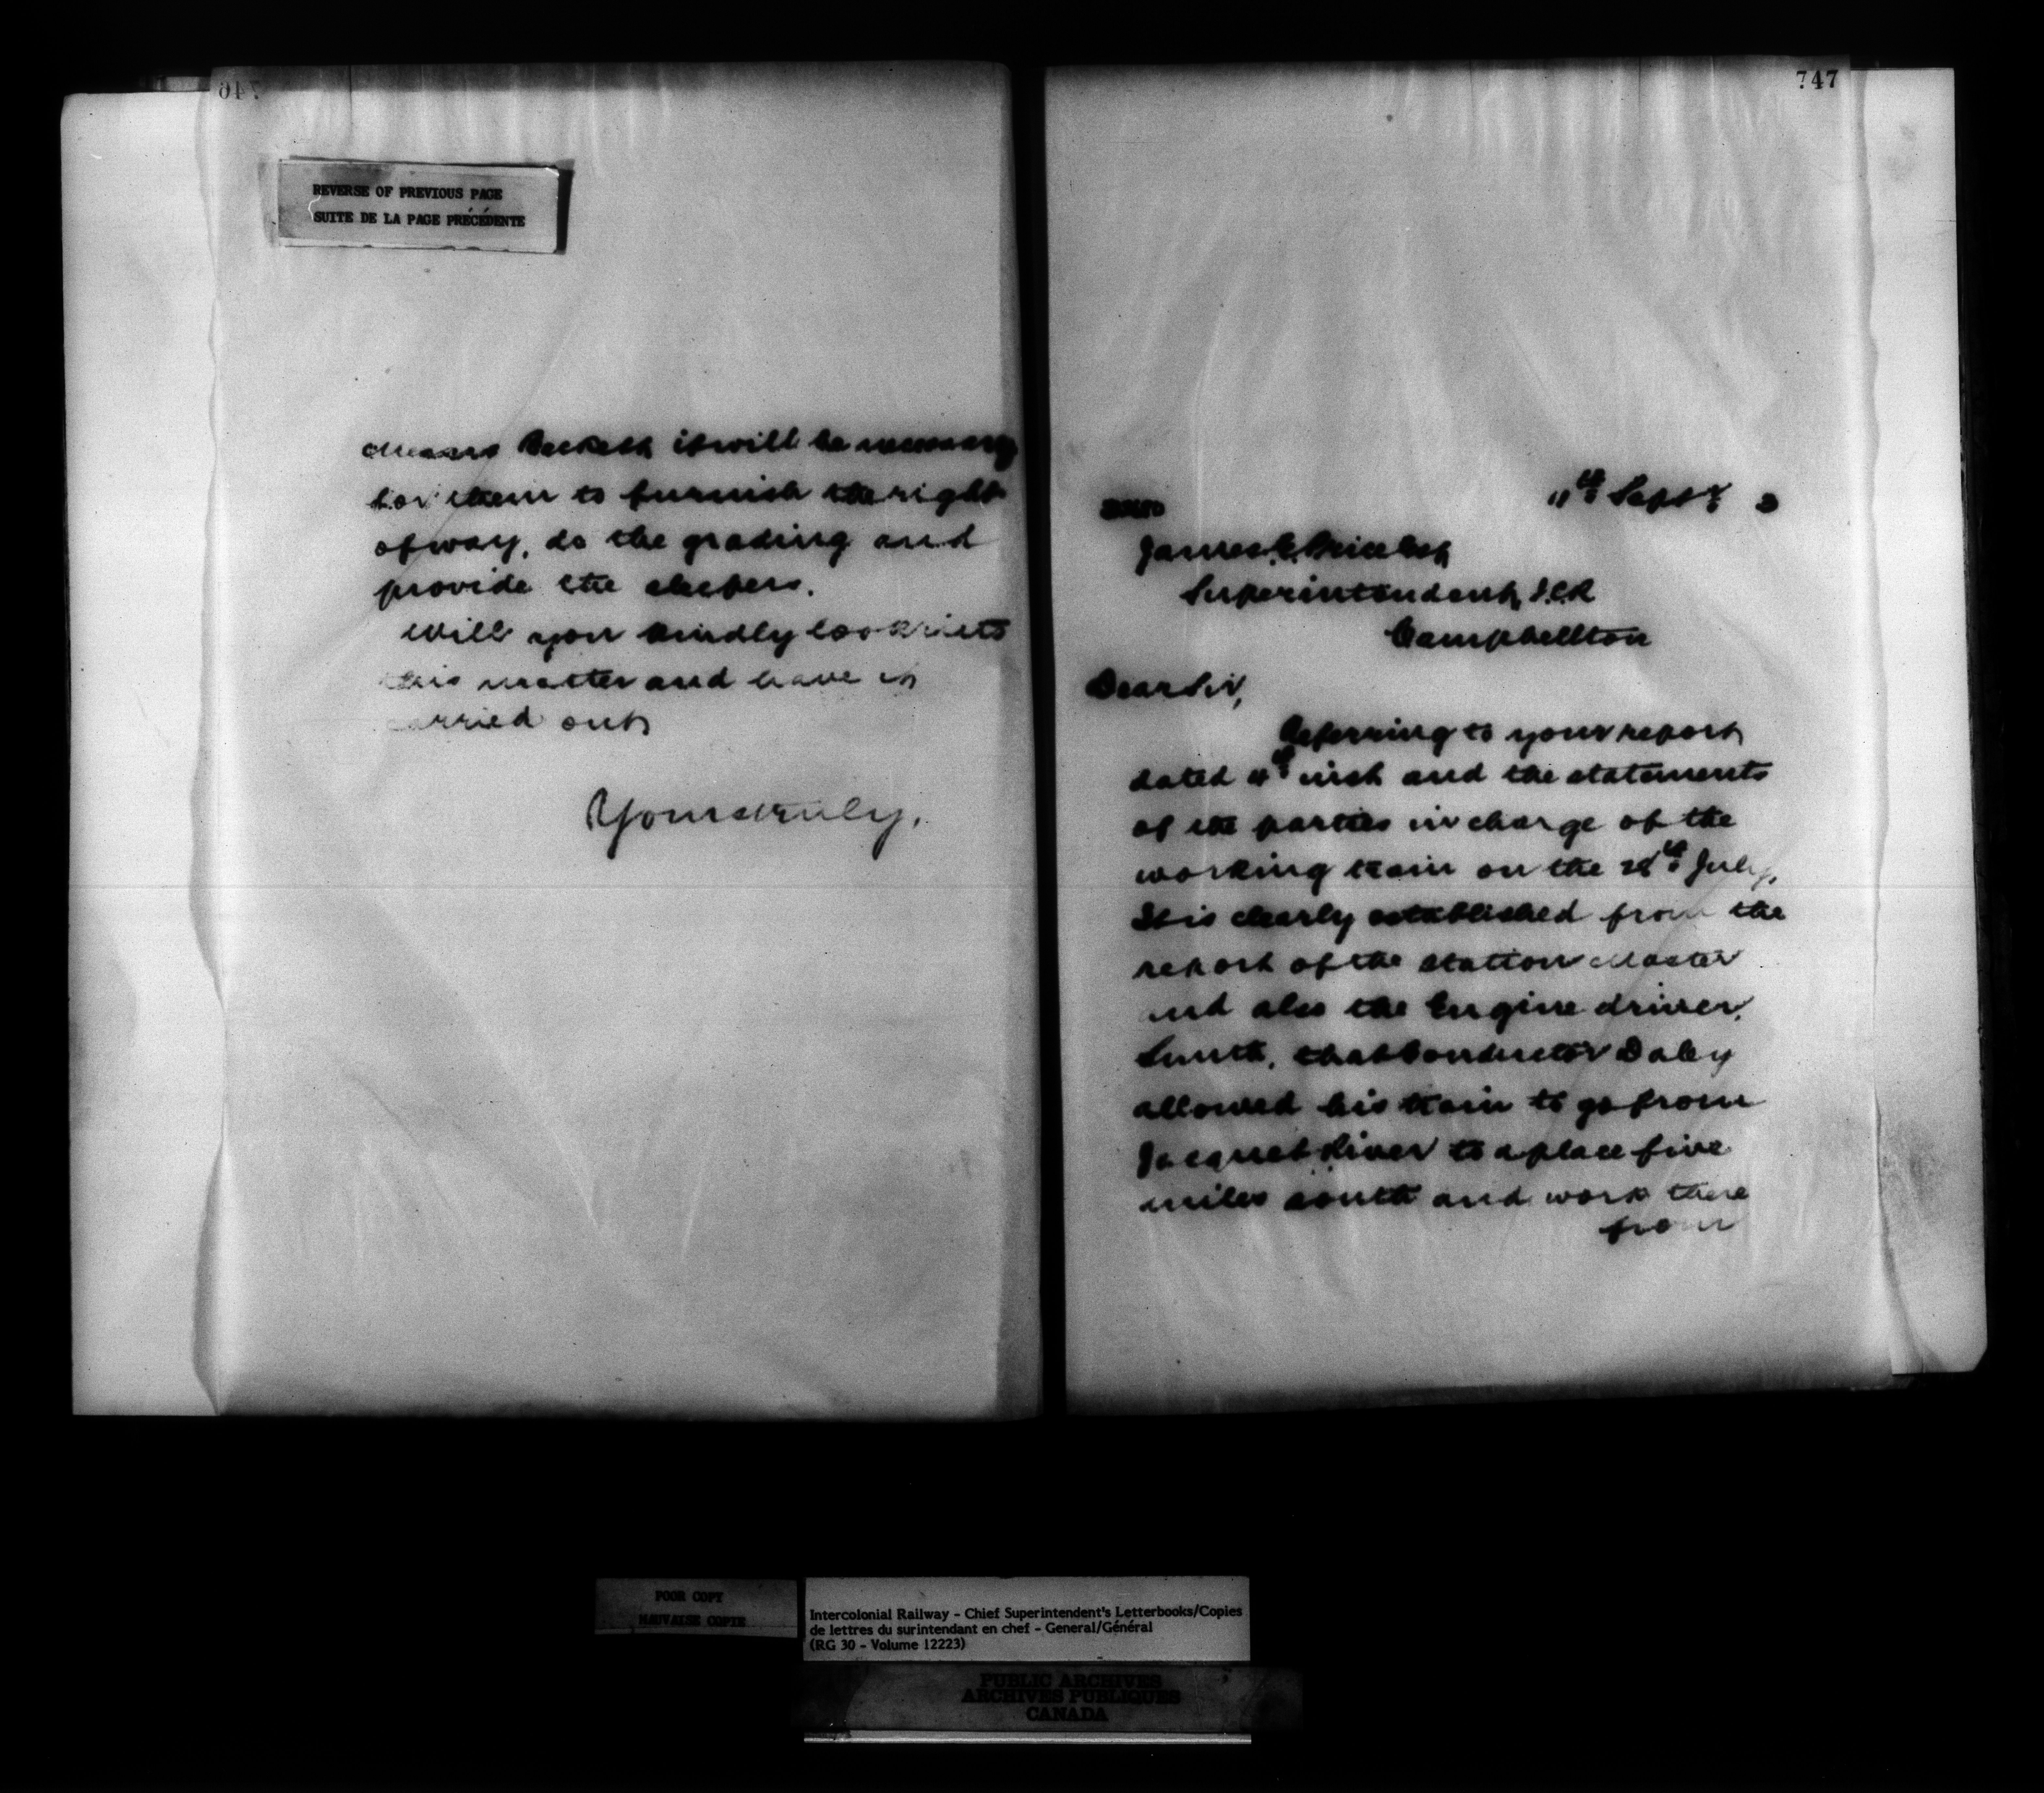 746
REVERSE OF PREVIOUS PAGE
SUITE DE LA PAGE PRÉCÉDENTE
Messrs it will be necessary
for them to furnish the right
of way, do the grading and
provide the sleepers.
Will you kindly look into
this matter and have it
carried out
Yours truly,
747
11th Septr 3
James E. Price Esq
Superintendent, I.C.R
Campbellton
Dear Sir,
Referring to your report
dated inst and the statements
of the parties in charge of the
working train on the 28th July,
It is clearly established from the
report of the Station Master
and also the Engine driver,
Smith, that Conductor Daley
allowed his train to go from
Jacquet River to a place five
miles south and work there
from
POOR COPY
MAUVAISE COPIE
Intercolonial Railway - Chief Superintendent's Letterbooks/Copies
de lettres du surintendant en chef - General/Général
(RG 30 - Volume 12223)
PUBLIC ARCHIVES
ARCHIVES PUBLIQUES
CANADA